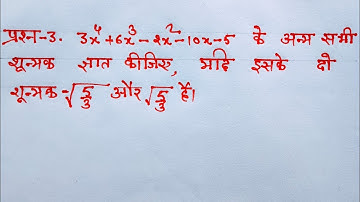 प्रश्न-3. 3x⁴+6x³-2x²-10x-5 के अन्य सभी
शून्यक ज्ञात कीजिए, यदि इसके दो
शून्यक -√5/3 और √5/3 हैं।